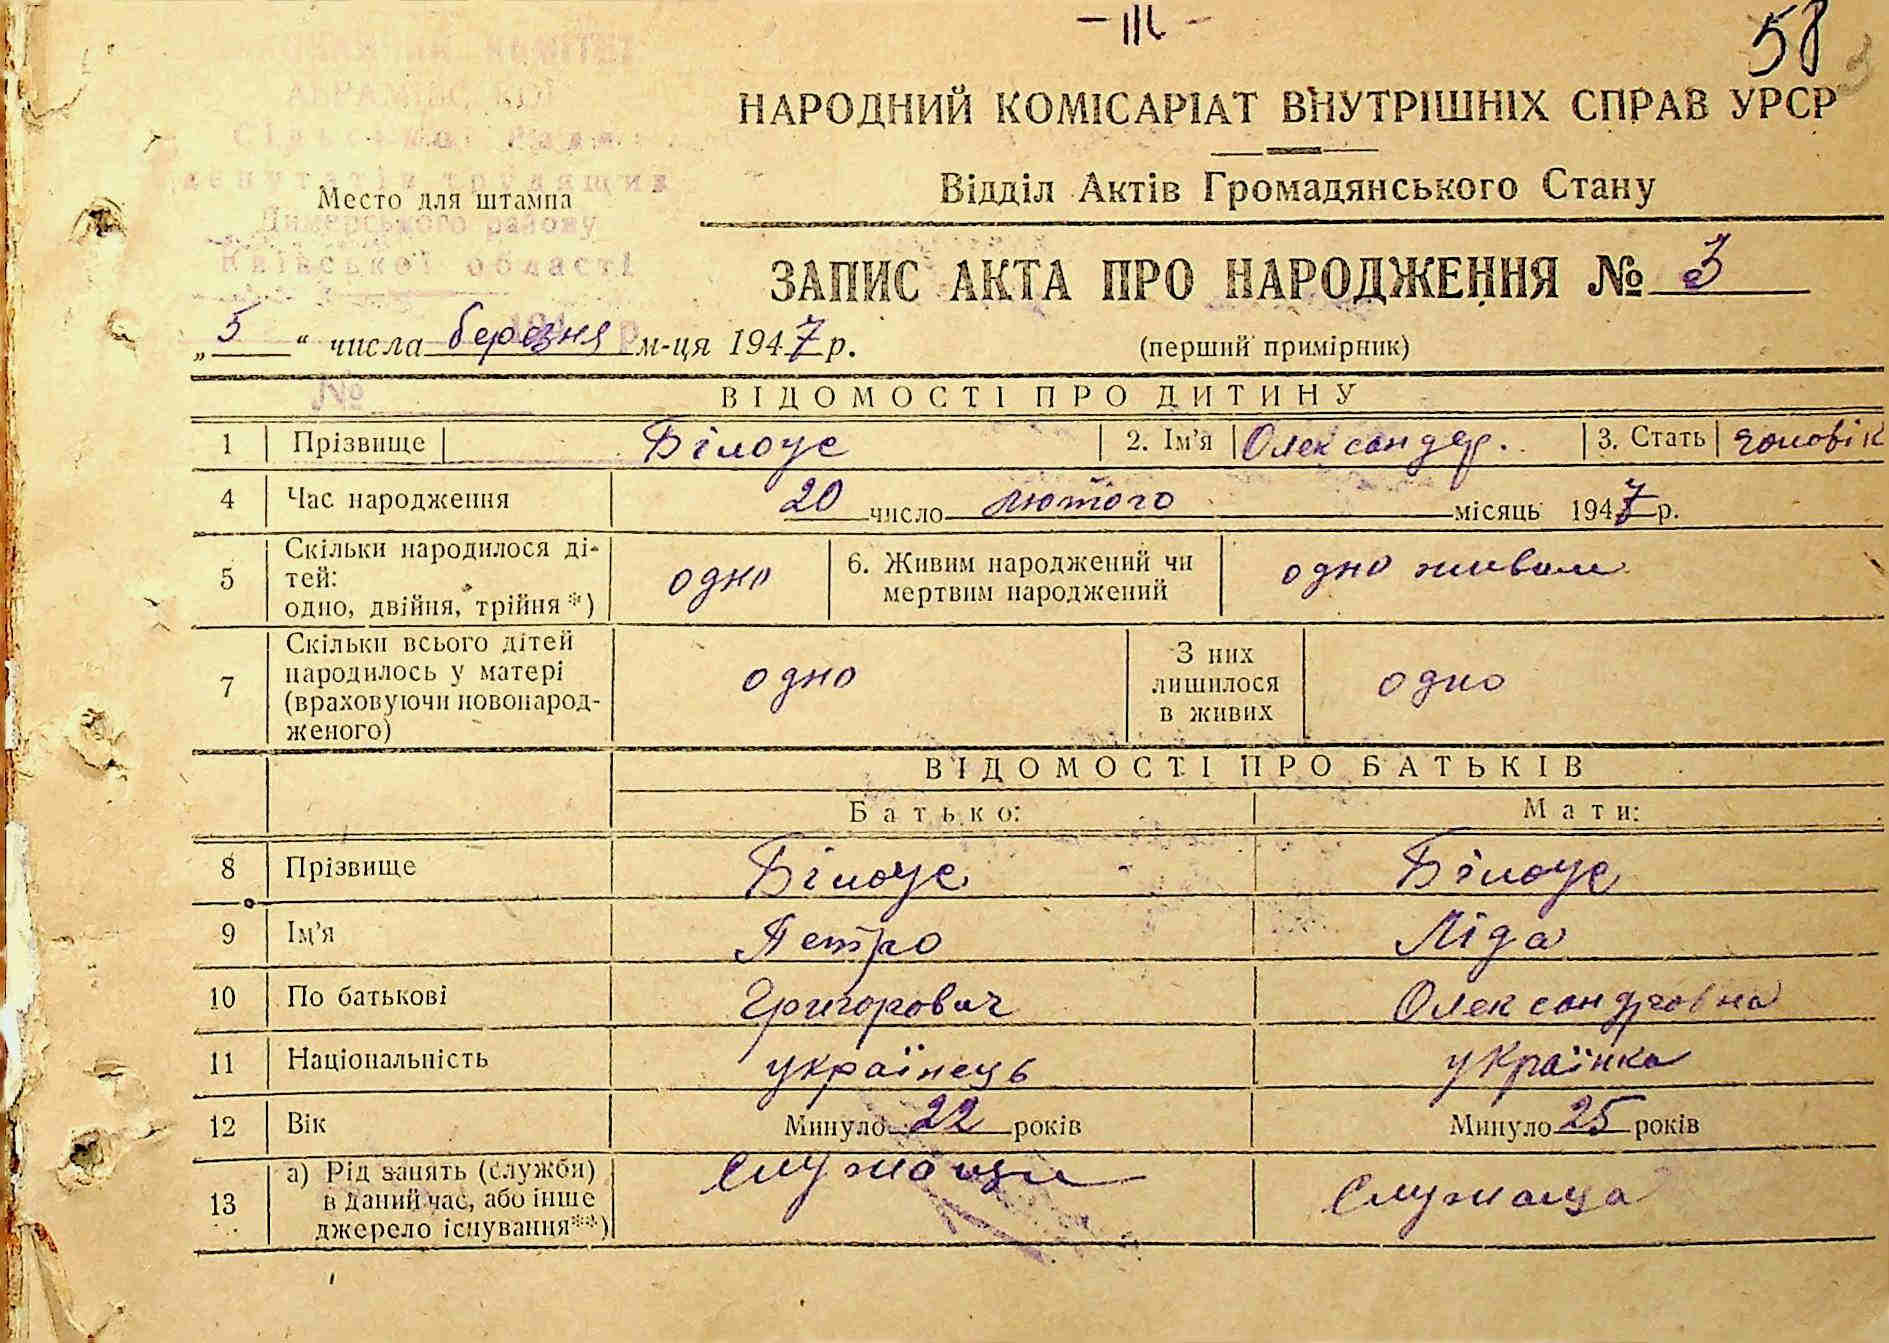 - III -
58
3
ВИКОНАВЧИЙ КОМІТЕТ
АБРАМІВСЬКОЇ
Сільської Ради
депутатів трудящих
Димерського району
Київської області
НАРОДНИЙ КОМІСАРІАТ ВНУТРІШНІХ СПРАВ УРСР
Відділ Актів Громадянського Стану
Место для штампа
ЗАПИС АКТА ПРО НАРОДЖЕННЯ № 3
„5“ числа березня м-ця 1947 р.
(перший примірник)
№
ВІДОМОСТІ ПРО ДИТИНУ
1 Прізвище Білоус 2. Ім'я Олександр. 3. Стать чоловік
4 Час народження 20 число лютого місяць 1947 р.
5 Скільки народилося ді-
тей:
одно, двійня, трійня*) одно 6. Живим народжений чи
мертвим народжений одно живим
7 Скільки всього дітей
народилось у матері
(враховуючи новонарод-
женого) одно З них
лишилося
в живих одно
ВІДОМОСТІ ПРО БАТЬКІВ
Батько: Мати:
8 Прізвище Білоус Білоус
9 Ім'я Петро Ліда
10 По батькові Григорович Олександровна
11 Національність українець українка
12 Вік Минуло 22 років Минуло 25 років
13 а) Рід занять (служби)
в даний час, або інше
джерело існування**) служащи служаща